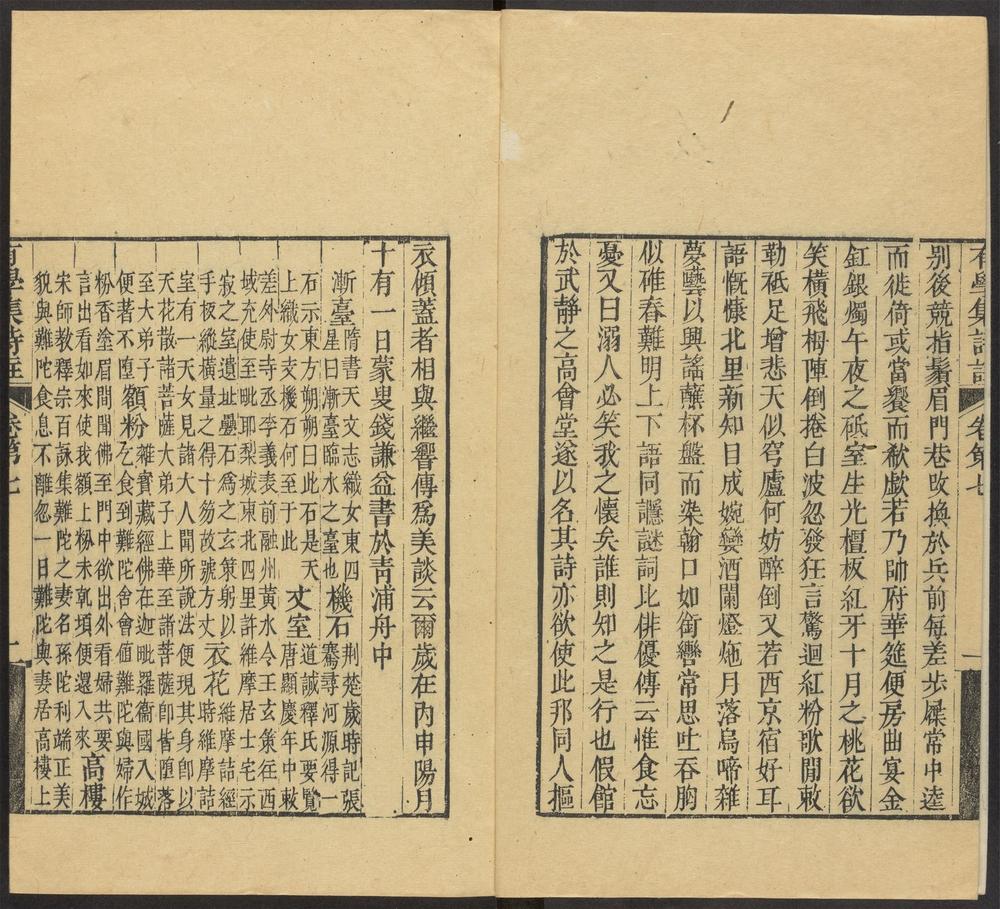 有學集詩註 卷第七 一
別後競指鬚眉門巷改換於兵前每差步屧常中逵
而徙倚或當饗而欷歔若乃帥府華筵便房曲宴金
釭銀燭午夜之砥室生光檀板紅牙十月之桃花欲
笑橫飛栂陣倒捲白波忽發狂言驚迴紅粉歌閒敕
勒砥足增悲天似穹廬何妨醉倒又若西京宿好耳
語慨慷北里新知目成婉孌酒闌燈炧月落烏啼雜
夢囈以興謠蘸杯盤而染翰口如銜轡常思吐吞胸
似碓舂難明上下語同讔謎詞比俳優傳云惟食忘
憂又曰溺人必笑我之懷矣誰則知之是行也假館
於武靜之高會堂遂以名其詩亦欲使此邦同人摳
衣傾蓋者相與繼響傳爲美談云爾歲在丙申陽月
十有一日蒙叟錢謙益書於靑浦舟中
漸臺 隋書天文志織女東四星曰漸臺臨水之臺也 機石 荆楚歲時記張騫尋河源得一
石示東方朔朔曰此石是天上織女支機石何至于此 丈室 道誠釋氏要覽唐顯慶年中敕
差外尉寺丞李義表前融州黃水令王玄策徃西域充使至毗耶梨城東北四里許維摩居士宅示
寂之室遺址疊石爲之玄策躬以手板縱橫量之得十笏故號方丈 衣花 維摩詰經時維摩詰
室有一天女見諸大人聞所說法便現其身卽以天花散諸菩薩大弟子上華至諸菩薩卽皆墮落
至大弟子便著不墮 額粉 雜寶藏經佛在迦毗羅衞國入城乞食到難陀舍會値難陀與婦作
粉香塗眉間聞佛至門中欲出外看婦共要言出看如來使我額上粉未乾頃便還入來 高樓
宋師敎釋宗百詠集難陀之妻名孫陀利端正美貌與難陀食息不離忽一日難陀與妻居高樓上
有學集詩註 卷第七 二